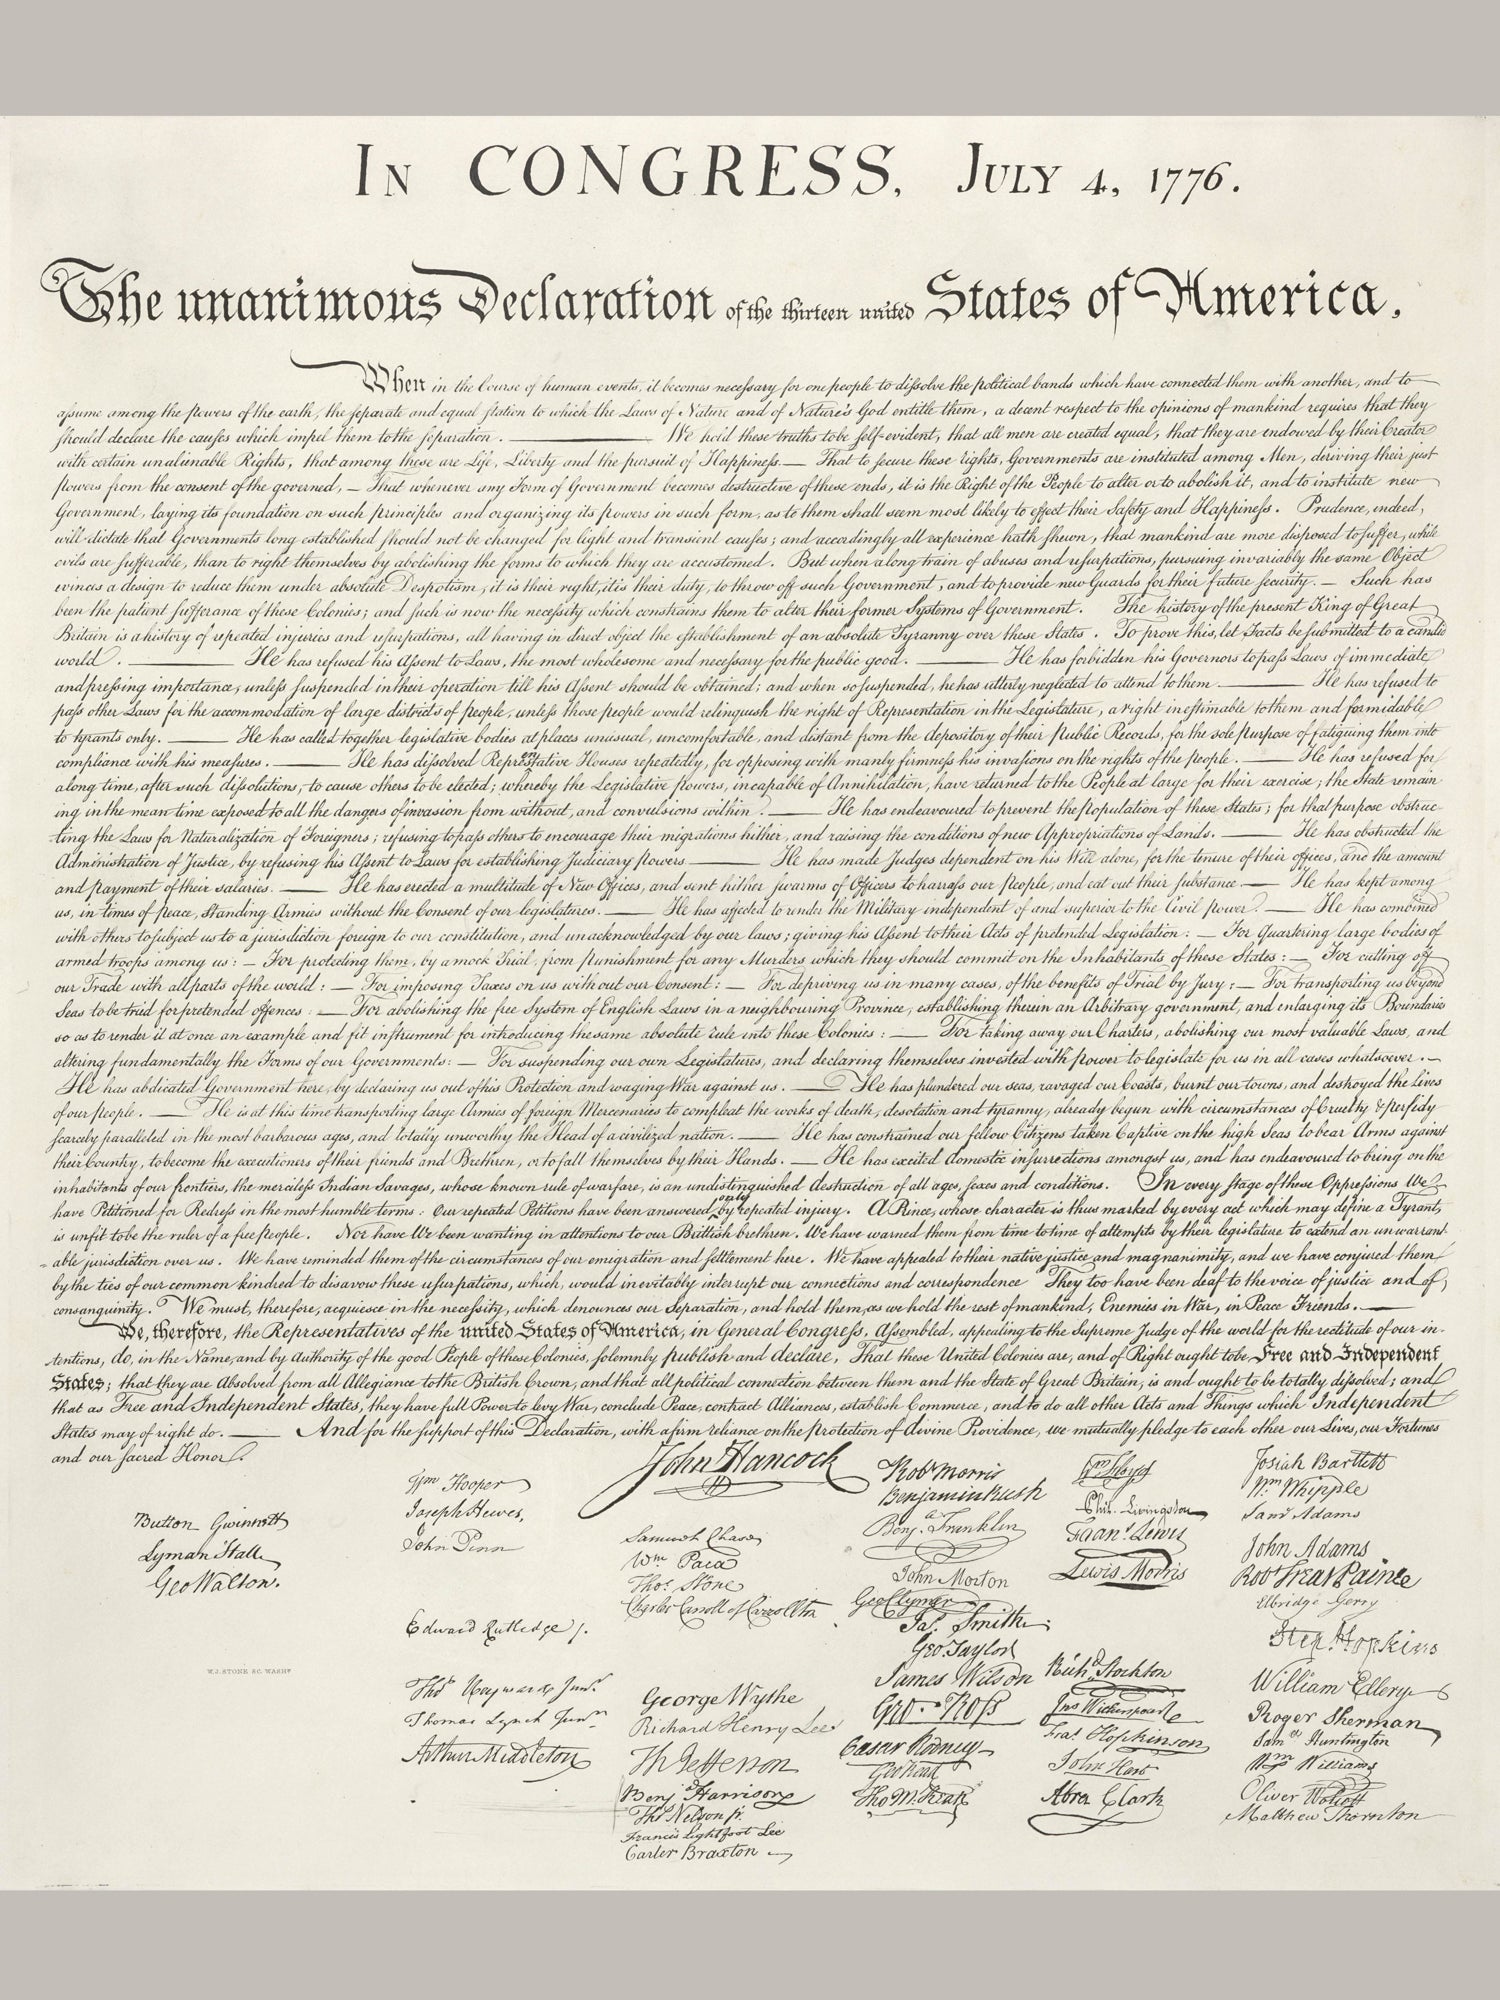 In CONGRESS, July 4, 1776.
The unanimous Declaration of the thirteen united States of America,
When in the Course of human events, it becomes necessary for one people to dissolve the political bands which have connected them with another, and to
assume among the powers of the earth, the separate and equal station to which the Laws of Nature and of Nature's God entitle them, a decent respect to the opinions of mankind requires that they
should declare the causes which impel them to the separation. ——— We hold these truths to be self-evident, that all men are created equal, that they are endowed by their Creator
with certain unalienable Rights, that among these are Life, Liberty and the pursuit of Happiness.— That to secure these rights, Governments are instituted among Men, deriving their just
powers from the consent of the governed, — That whenever any Form of Government becomes destructive of these ends, it is the Right of the People to alter or to abolish it, and to institute new
Government, laying its foundation on such principles and organizing its powers in such form, as to them shall seem most likely to effect their Safety and Happiness. Prudence, indeed,
will dictate that Governments long established should not be changed for light and transient causes; and accordingly all experience hath shewn, that mankind are more disposed to suffer, while
evils are sufferable, than to right themselves by abolishing the forms to which they are accustomed. But when a long train of abuses and usurpations, pursuing invariably the same Object
evinces a design to reduce them under absolute Despotism, it is their right, it is their duty, to throw off such Government, and to provide new Guards for their future security. — Such has
been the patient sufferance of these Colonies; and such is now the necessity which constrains them to alter their former Systems of Government. The history of the present King of Great
Britain is a history of repeated injuries and usurpations, all having in direct object the establishment of an absolute Tyranny over these States. To prove this, let Facts be submitted to a candid
world. ——— He has refused his Assent to Laws, the most wholesome and necessary for the public good. ——— He has forbidden his Governors to pass Laws of immediate
and pressing importance, unless suspended in their operation till his Assent should be obtained; and when so suspended, he has utterly neglected to attend to them. ——— He has refused to
pass other Laws for the accommodation of large districts of people, unless those people would relinquish the right of Representation in the Legislature, a right inestimable to them and formidable
to tyrants only. ——— He has called together legislative bodies at places unusual, uncomfortable, and distant from the depository of their Public Records, for the sole purpose of fatiguing them into
compliance with his measures. ——— He has dissolved Representative Houses repeatedly, for opposing with manly firmness his invasions on the rights of the people. ——— He has refused for
a long time, after such dissolutions, to cause others to be elected; whereby the Legislative powers, incapable of Annihilation, have returned to the People at large for their exercise; the State remain-
ing in the mean time exposed to all the dangers of invasion from without, and convulsions within. ——— He has endeavoured to prevent the population of these States; for that purpose obstruc-
ting the Laws for Naturalization of Foreigners; refusing to pass others to encourage their migrations hither, and raising the conditions of new Appropriations of Lands. ——— He has obstructed the
Administration of Justice, by refusing his Assent to Laws for establishing Judiciary powers ——— He has made Judges dependent on his Will alone, for the tenure of their offices, and the amount
and payment of their salaries. ——— He has erected a multitude of New Offices, and sent hither swarms of Officers to harrass our people, and eat out their substance ——— He has kept among
us, in times of peace, Standing Armies without the Consent of our legislatures. ——— He has affected to render the Military independent of and superior to the Civil power. ——— He has combined
with others to subject us to a jurisdiction foreign to our constitution, and unacknowledged by our laws; giving his Assent to their Acts of pretended Legislation: — For Quartering large bodies of
armed troops among us: — For protecting them, by a mock Trial, from punishment for any Murders which they should commit on the Inhabitants of these States: — For cutting off
our Trade with all parts of the world: — For imposing Taxes on us without our Consent: — For depriving us in many cases, of the benefits of Trial by Jury; — For transporting us beyond
Seas to be tried for pretended offences: — For abolishing the free System of English Laws in a neighbouring Province, establishing therein an Arbitrary government, and enlarging its Boundaries
so as to render it at once an example and fit instrument for introducing the same absolute rule into these Colonies: — For taking away our Charters, abolishing our most valuable Laws, and
altering fundamentally the Forms of our Governments: — For suspending our own Legislatures, and declaring themselves invested with power to legislate for us in all cases whatsoever. —
He has abdicated Government here, by declaring us out of his Protection and waging War against us. ——— He has plundered our seas, ravaged our Coasts, burnt our towns, and destroyed the lives
of our people. ——— He is at this time transporting large Armies of foreign Mercenaries to compleat the works of death, desolation and tyranny, already begun with circumstances of Cruelty & perfidy
scarcely paralleled in the most barbarous ages, and totally unworthy the Head of a civilized nation. ——— He has constrained our fellow Citizens taken Captive on the high Seas to bear Arms against
their Country, to become the executioners of their friends and Brethren, or to fall themselves by their Hands. — He has excited domestic insurrections amongst us, and has endeavoured to bring on the
inhabitants of our frontiers, the merciless Indian Savages, whose known rule of warfare, is an undistinguished destruction of all ages, sexes and conditions. In every stage of these Oppressions We
have Petitioned for Redress in the most humble terms: Our repeated Petitions have been answered only by repeated injury. A Prince, whose character is thus marked by every act which may define a Tyrant,
is unfit to be the ruler of a free people. Nor have We been wanting in attentions to our Brittish brethren. We have warned them from time to time of attempts by their legislature to extend an unwarrant-
able jurisdiction over us. We have reminded them of the circumstances of our emigration and settlement here. We have appealed to their native justice and magnanimity, and we have conjured them
by the ties of our common kindred to disavow these usurpations, which, would inevitably interrupt our connections and correspondence They too have been deaf to the voice of justice and of
consanguinity. We must, therefore, acquiesce in the necessity, which denounces our Separation, and hold them, as we hold the rest of mankind, Enemies in War, in Peace Friends. ———
We, therefore, the Representatives of the united States of America, in General Congress, Assembled, appealing to the Supreme Judge of the world for the rectitude of our in-
tentions, do, in the Name, and by Authority of the good People of these Colonies, solemnly publish and declare, That these United Colonies are, and of Right ought to be Free and Independent
States; that they are Absolved from all Allegiance to the British Crown, and that all political connection between them and the State of Great Britain, is and ought to be totally dissolved; and
that as Free and Independent States, they have full Power to levy War, conclude Peace, contract Alliances, establish Commerce, and to do all other Acts and Things which Independent
States may of right do. ——— And for the support of this Declaration, with a firm reliance on the protection of divine Providence, we mutually pledge to each other our Lives, our Fortunes
and our sacred Honor.
Button Gwinnett
Lyman Hall
Geo Walton.
Wm Hooper
Joseph Hewes,
John Penn
Edward Rutledge /.
Thos Heyward Junr.
Thomas Lynch Junr.
Arthur Middleton
John Hancock
Samuel Chase
Wm. Paca
Thos. Stone
Charles Carroll of Carrollton
George Wythe
Richard Henry Lee
Th Jefferson
Benj Harrison
Thos Nelson jr.
Francis Lightfoot Lee
Carter Braxton
Robt Morris
Benjamin Rush
Benj. Franklin
John Morton
Geo Clymer
Jas. Smith
Geo. Taylor
James Wilson
Geo. Ross
Caesar Rodney
Geo Read
Tho M:Kean
Wm Floyd
Phil. Livingston
Frans. Lewis
Lewis Morris
Richd. Stockton
Jno Witherspoon
Fras. Hopkinson
John Hart
Abra Clark
Josiah Bartlett
Wm. Whipple
Saml Adams
John Adams
Robt Treat Paine
Elbridge Gerry
Step. Hopkins
William Ellery
Roger Sherman
Saml Huntington
Wm Williams
Oliver Wolcott
Matthew Thornton
W.J. STONE SC. WASHN